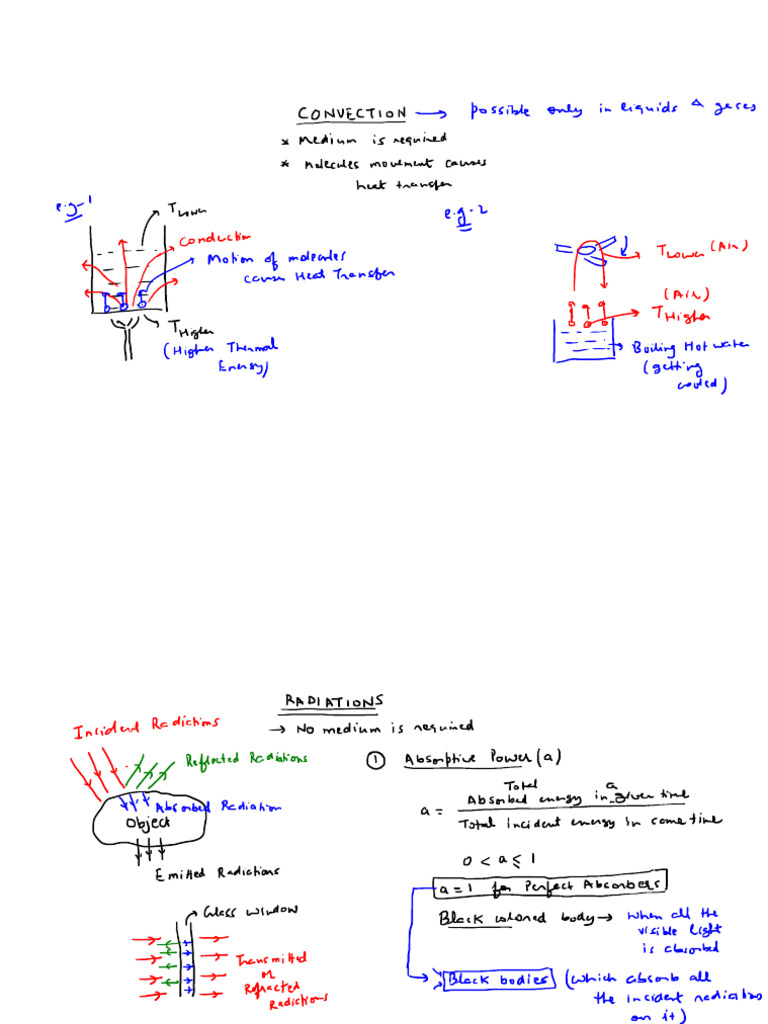 CONVECTION → Possible only in liquids & gases
* Medium is required
* Molecules movement causes
heat transfer
e.g-1
T Lower
Conduction
Motion of molecules
cause Heat Transfer
T Higher
(Higher Thermal
Energy)
e.g-2
T Lower (Air)
(Air)
T Higher
Boiling Hot water
(getting
cooled)
RADIATIONS
→ No medium is required
Incident Radiations
Reflected Radiations
Absorbed Radiation
Object
Emitted Radiations
Glass window
Transmitted
or
Refracted
Radiations
① Absorptive Power (a)
a = Total Absorbed energy in a given time
Total incident energy in same time
0 < a ⩽ 1
a = 1 for Perfect Absorbers
Black colored body → When all the
visible light
is absorbed
Black bodies (which absorb all
the incident radiations
on it)